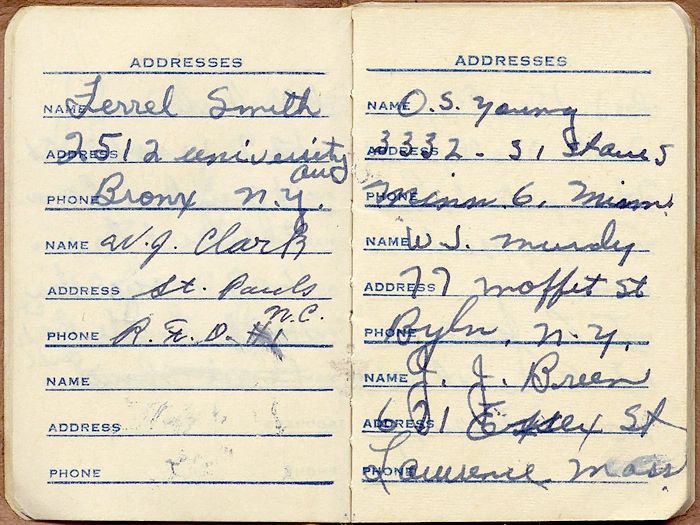 ADDRESSES
NAME Ferrel Smith
ADDRESS 2512 university
ave
PHONE Bronx N.Y.
NAME W.J. Clark
ADDRESS St. Pauls
N.C.
PHONE R.F.D. #1
NAME
ADDRESS
PHONE
ADDRESSES
NAME O.S. Young
ADDRESS 3332 - 31 S
PHONE Minn. 6. Minn.
NAME W J. Mundy
ADDRESS 77 Moffet St
PHONE Byln. N.Y.
NAME J. J. Breen
ADDRESS 621 Essex St
PHONE Lawrence Mass